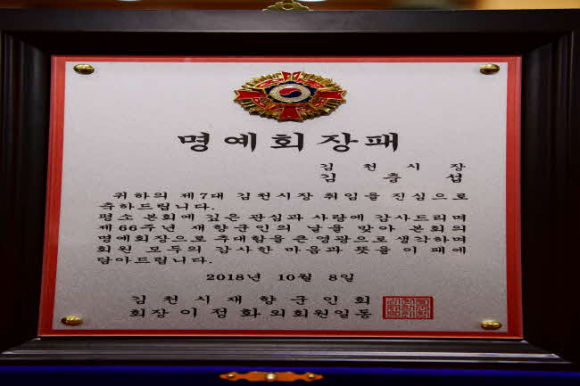 명예회장패
김천시장
김충섭
귀하의 제7대 김천시장 취임을 진심으로
축하드립니다.
평소 본회에 깊은 관심과 사랑에 감사드리며
제66주년 재향군인의 날을 맞아 본회의
명예회장으로 추대함을 큰 영광으로 생각하며
회원 모두의 감사한 마음과 뜻을 이 패에
담아드립니다.
2018년 10월 8일
김천시재향군인회
회장 이정화외회원일동